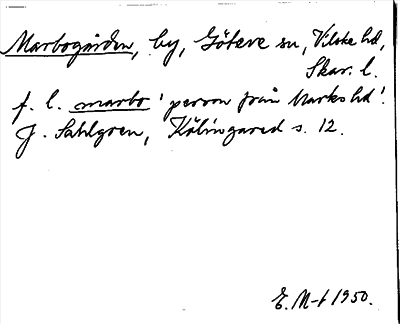 Marbogården, by, Göteve sn, Vilske hd,
Skar. l.
f. l. marbo 'person från Marks hd'.
J. Sahlgren, Kölingared s. 12.
E. M-t 1950.